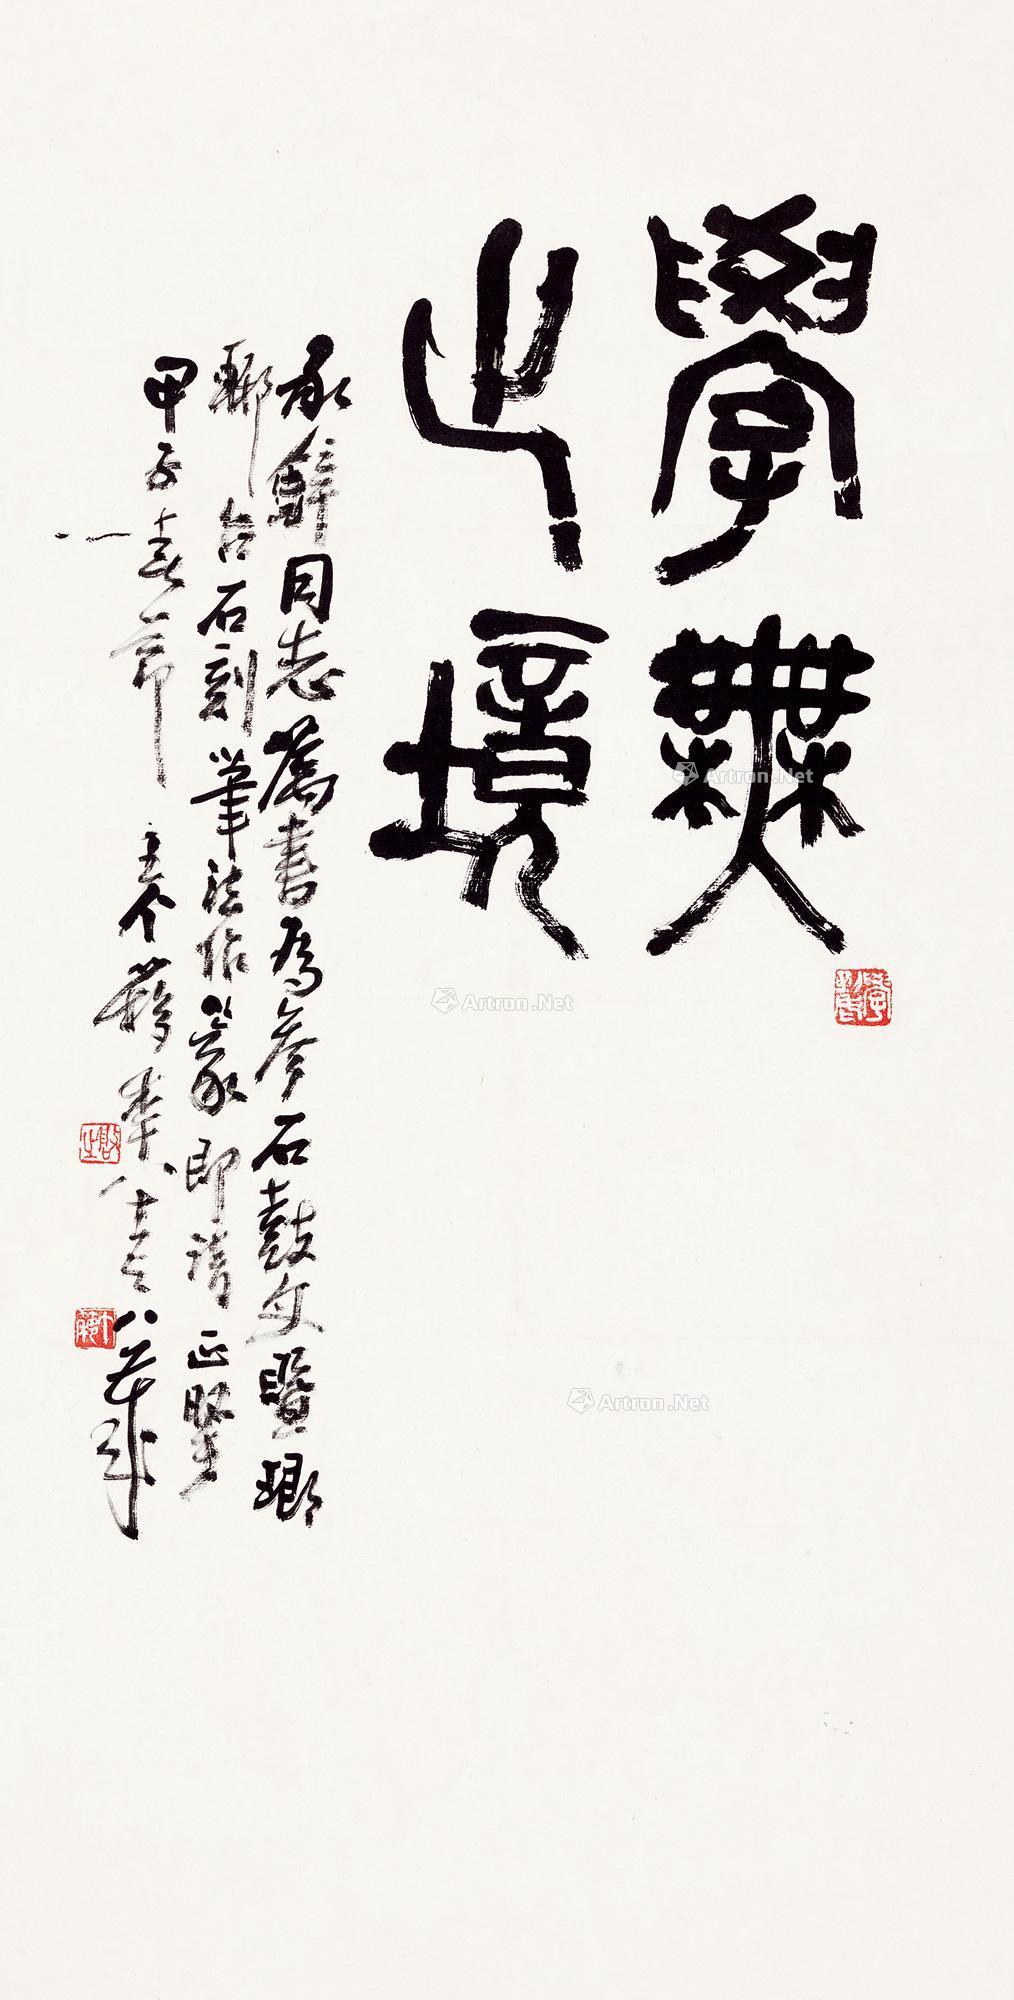 學無
止境
承同志書為參石鼓文暨瑯
琊台石刻筆法作篆即請正
甲子春節 王个簃
啟之
Artron.Net
Artron.Net
Artron.Net